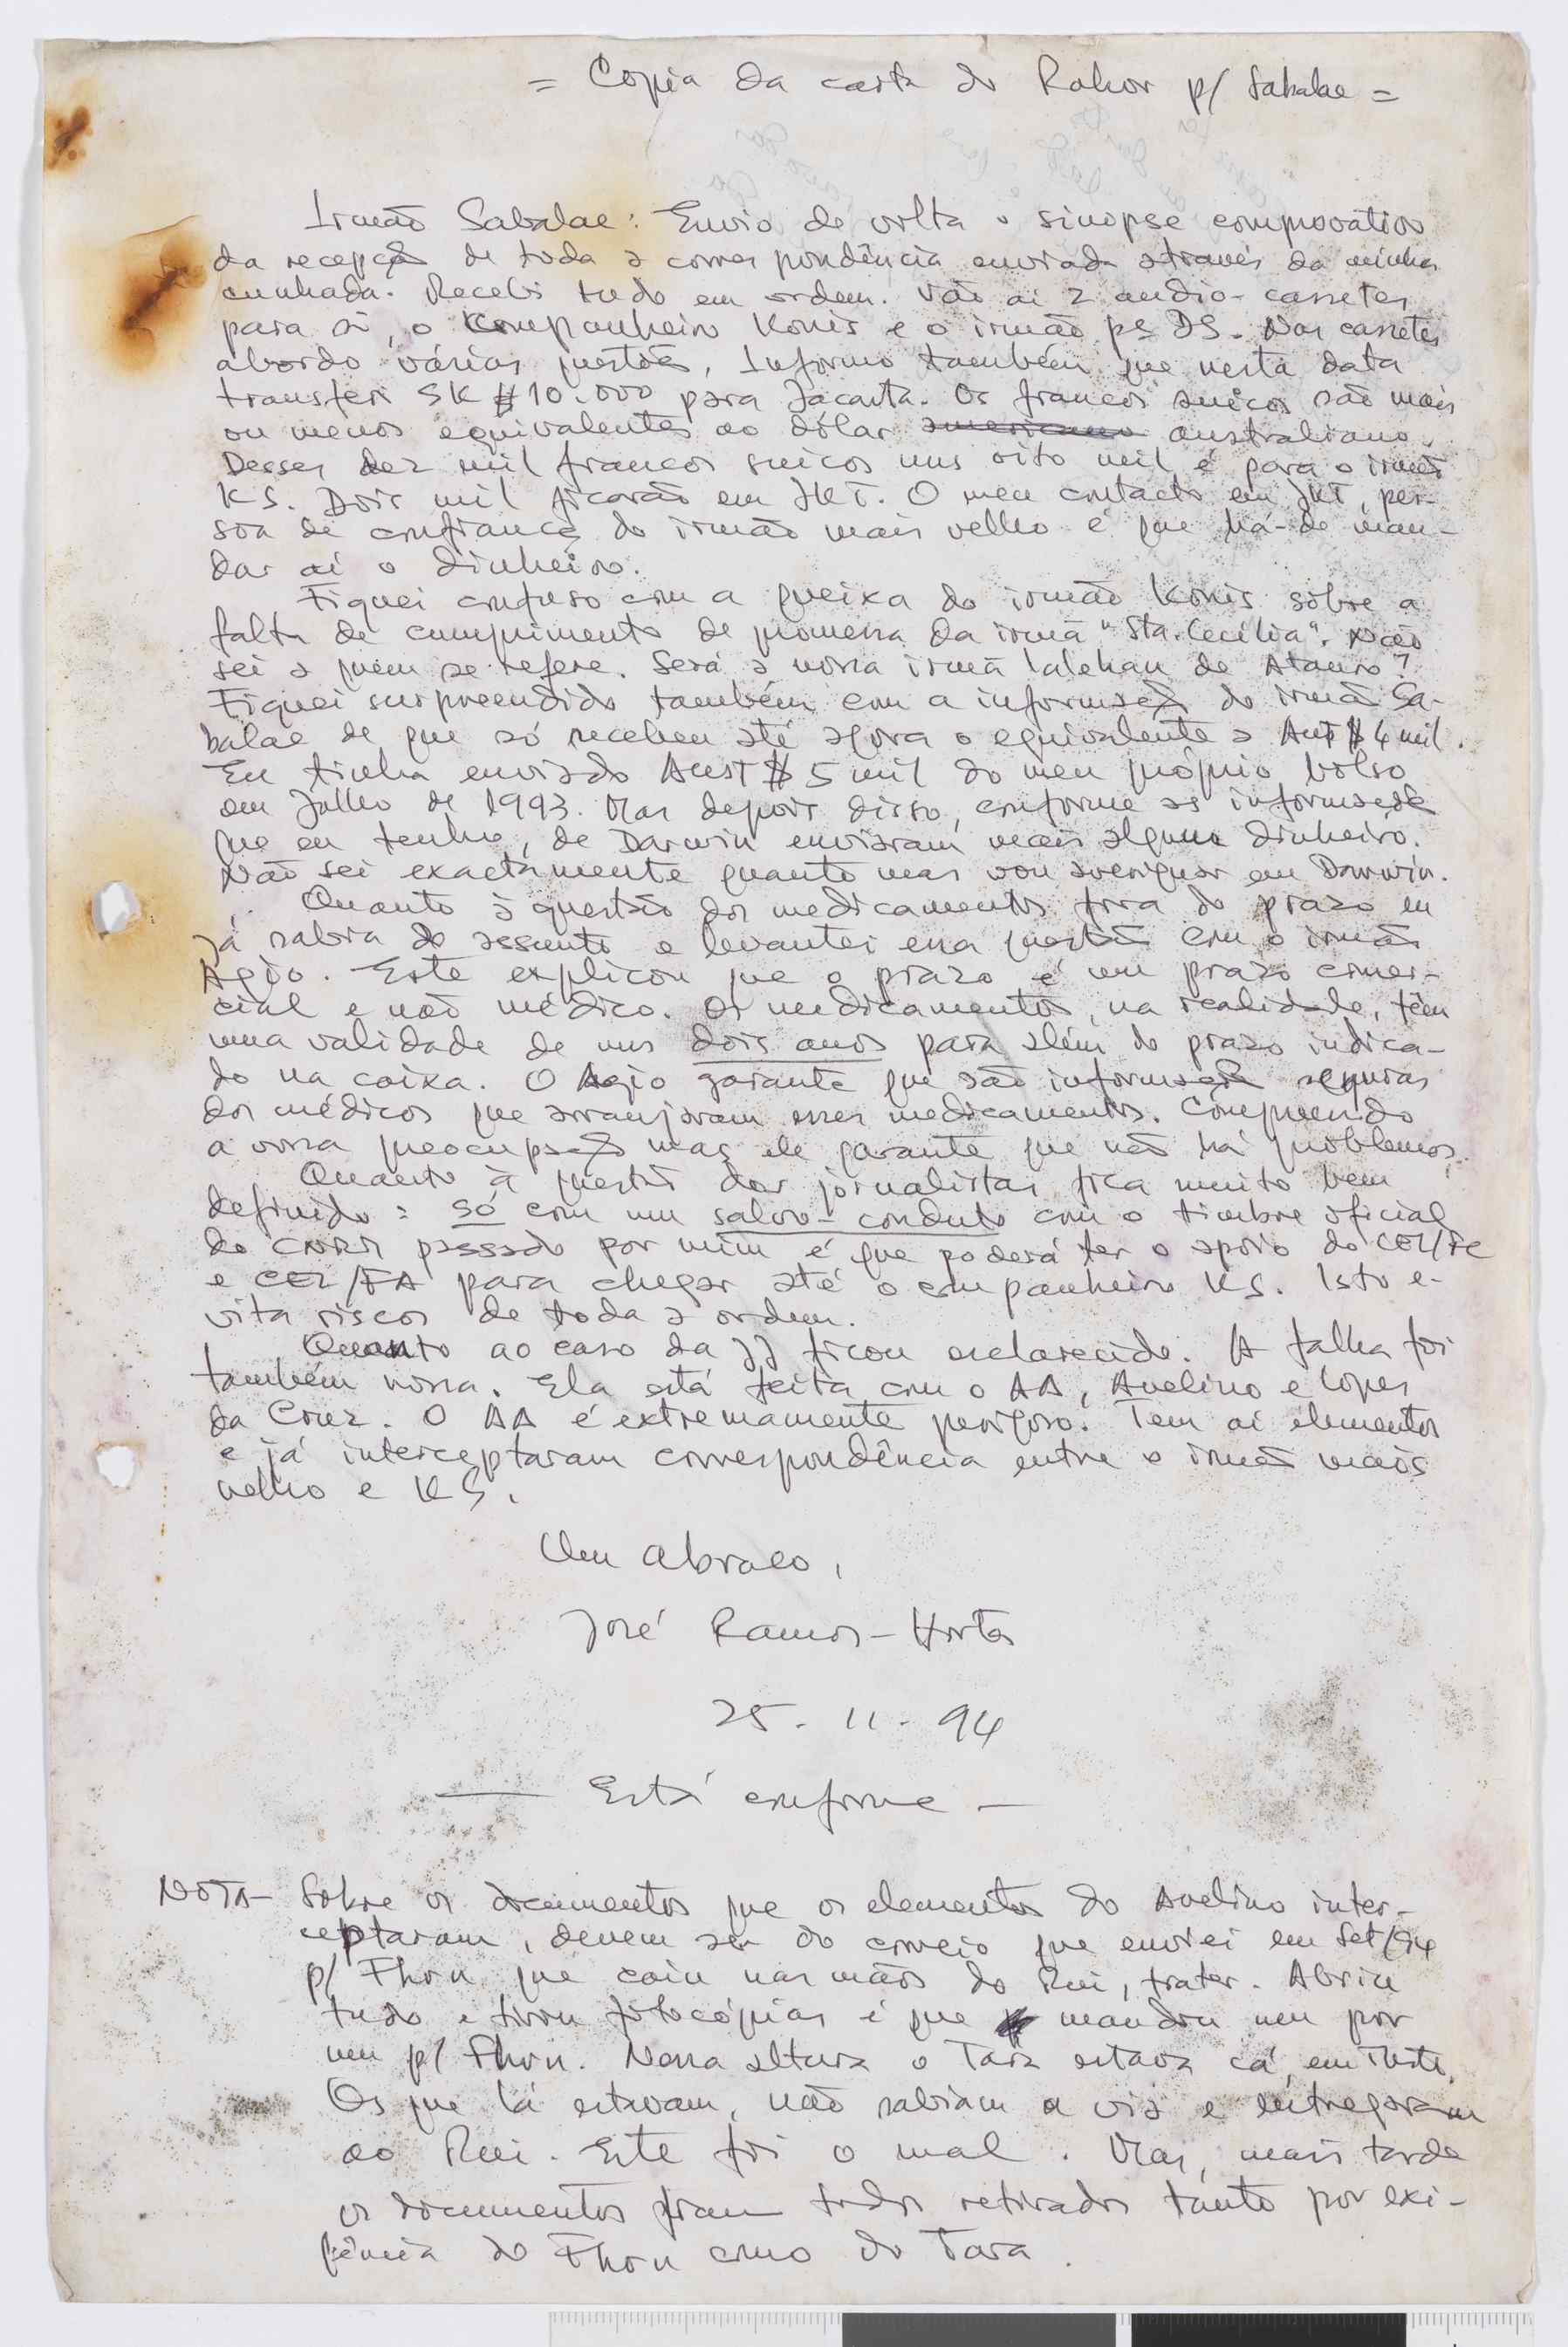 = Copia da carta do Rahor p/ Sabalae =
Irmão Sabalae: Envio de volta o sinopse comprovativo
da recepção de toda a correspondência enviada através da minha
cunhada. Recebi tudo em ordem. Vão aí 2 audio-cassetes
para si, o Companheiro Konis e o irmão pe DS. Nas cassetes
abordo várias questões, Informo também que nesta data
transferi SK $10.000 para Jacarta. Os francos suiços são mais
ou menos equivalentes ao dólar americano australiano.
Desses dez mil francos suiços uns oito mil é para o irmão
KS. Dois mil ficarão em JKT. O meu contacto em JKT, pes-
soa de confiança do irmão mais velho é que há-de man-
dar aí o dinheiro.
Fiquei confuso com a queixa do irmão Konis sôbre a
falta de cumprimento de promessa da irmã "Sta. Cecilia". Não
sei a quem se refere. Será a nossa irmã lalehan de Atauro?
Fiquei surpreendido também com a informação do irmão Sa-
balae de que só recebeu até agora o equivalente a Aust $ 4 mil.
Eu tinha enviado Aust $ 5 mil do meu próprio bolso
em Julho de 1993. Mas depois disso, conforme as informações
que eu tenho, de Darwin enviaram mais algum dinheiro.
Não sei exactamente quanto mas vou averiguar em Darwin.
Quanto à questão dos medicamentos fora do prazo eu
já sabia do assunto e levantei essa questão com o irmão
Agio. Este explicou que o prazo é um prazo comer-
cial e não médico. Os medicamentos, na realidade, têm
uma validade de uns dois anos para além do prazo indica-
do na caixa. O Agio garante que são informações seguras
dos médicos que arranjaram esses medicamentos. Compreendo
a vossa preocupação mas ele garante que não há problemas.
Quanto à questão dos jornalistas fica muito bem
definido: só com um salvo-conduto com o timbre oficial
do CNRM passado por mim é que poderá ter o apoio do CEL/FC
e CEL/FA para chegar até o companheiro KS. Isto e-
vita riscos de toda a ordem.
Quanto ao caso da JJ ficou esclarecido. A falha foi
também nossa. Ela está feita com o AA, Avelino e Lopes
da Cruz. O AA é extremamente perigoso. Tem aí elementos
e já interceptaram correspondência entre o irmão mais
velho e KS.
Um abraço,
José Ramos-Horta
25. 11. 94
— Está conforme —
NOTA- Sobre os documentos que os elementos do Avelino inter-
ceptaram, devem ser do correio que enviei em Set/94
p/ Fhon que caiu nas mãos do Rui, frater. Abriu
tudo e tirou fotocópias é que mandou um por
um p/ Fhon. Nessa altura o Tara estava cá, em
Os que lá estavam, não sabiam a via e entregaram
ao Rui. Este foi o mal. Mas, mais tarde
os documentos foram todos retirados tanto por exi-
gência do Fhon como do Tara.